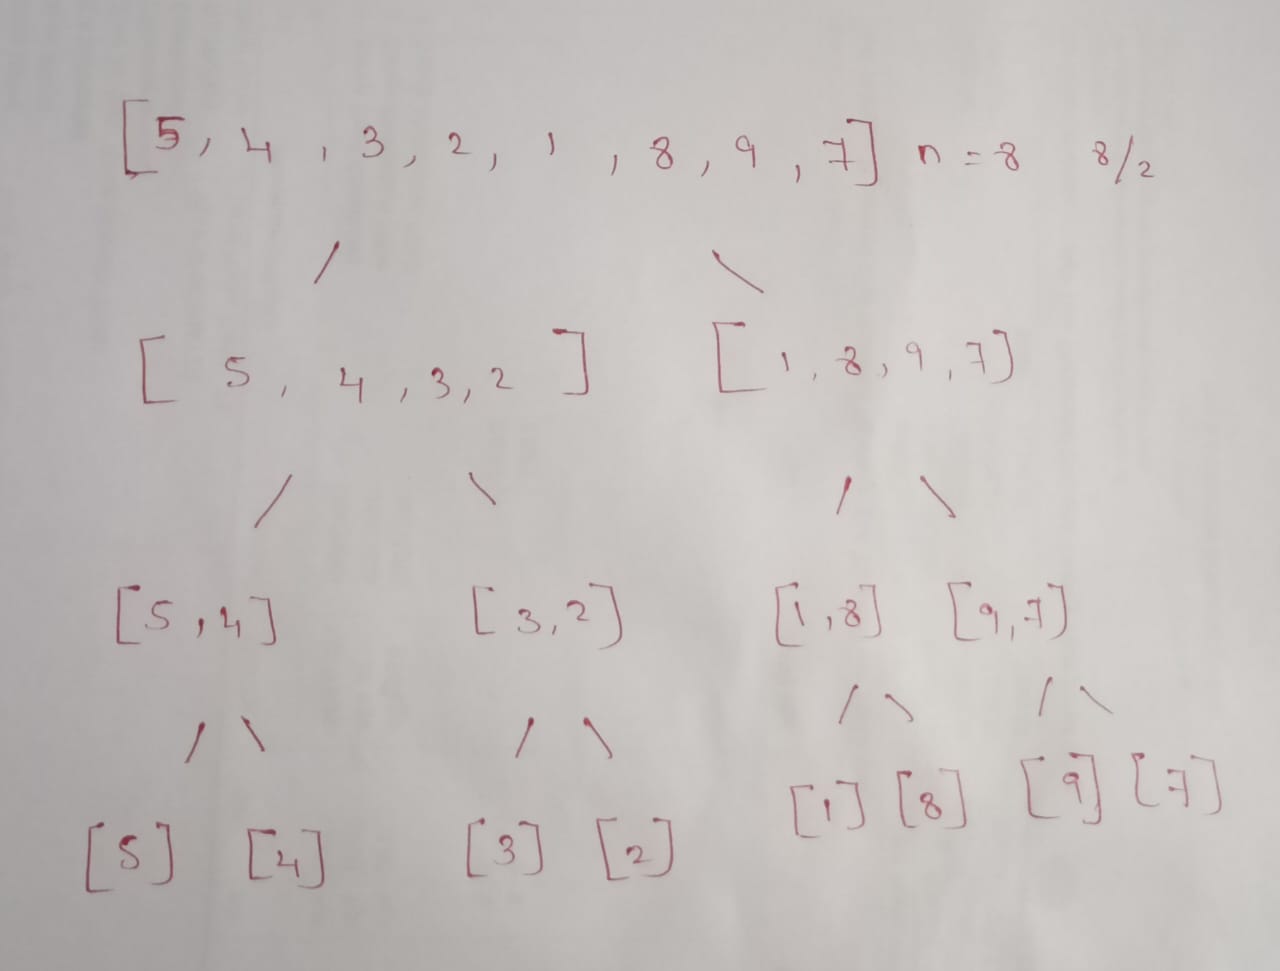 [5, 4, 3, 2, 1, 8, 9, 7] n=8 8/2
[5, 4, 3, 2] [1, 8, 9, 7]
[5, 4] [3, 2] [1, 8] [9, 7]
[5] [4] [3] [2] [1] [8] [9] [7]